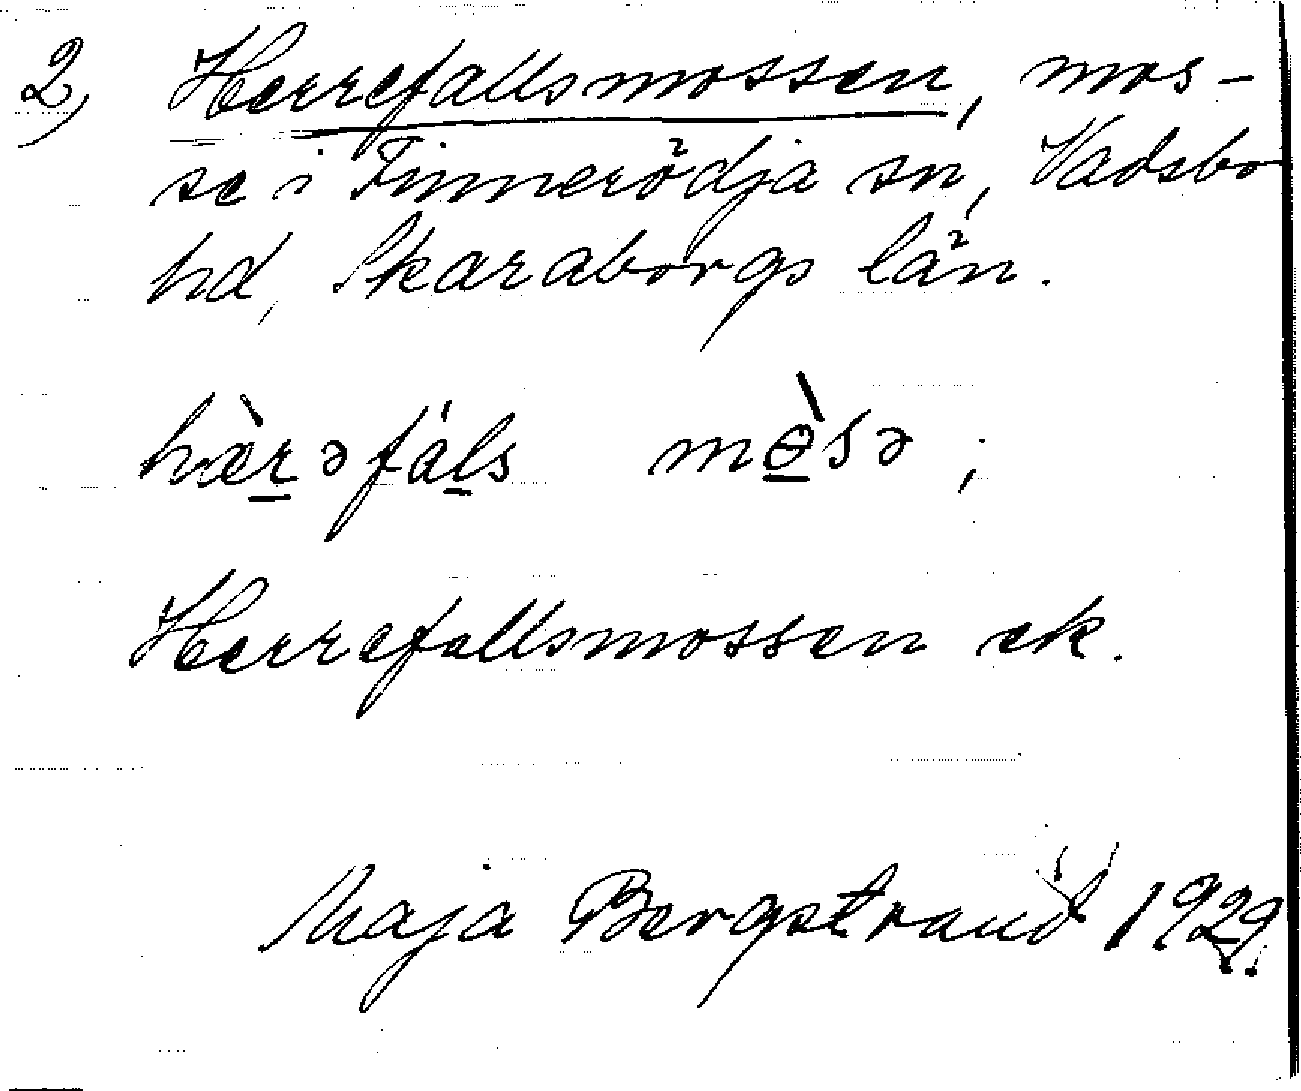 2) Herrefallsmossen, mos-
se i Finnerödja sn, Vadsbo
hd, Skaraborgs län.
hæ̀r̲əfál̲s mɵ̲̀sə ;
Herrefallsmossen ek.
Maja Bergstrand 1929.